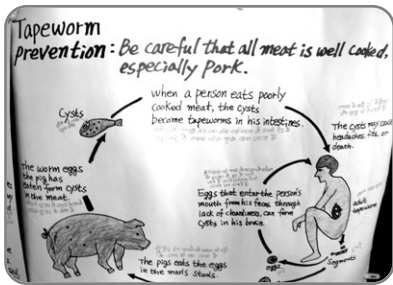 Tapeworm
Prevention: Be careful that all meat is well cooked,
especially Pork.
when a person eats poorly
cooked meat, the cysts
become tapeworms in his intestines.
Cysts
The cysts may cause
headaches, fits, or
death.
The worm eggs
the pig has
eaten form cysts
in the meat.
Eggs that enter the person's
mouth from his feces through
lack of cleanliness, can form
cysts in his brain.
adult
tapeworms
segments
eggs
The pigs eats the eggs
in the man's stools.